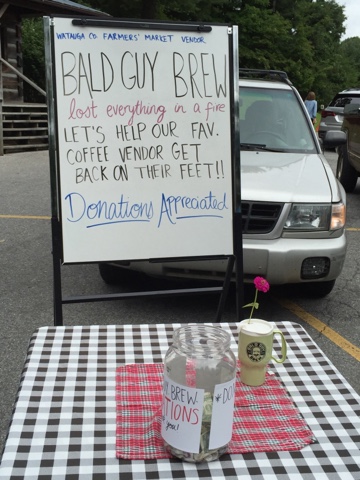 WATAUGA CO. FARMERS' MARKET VENDOR
BALD GUY BREW
lost everything in a fire
LET'S HELP OUR FAV.
COFFEE VENDOR GET
BACK ON THEIR FEET!!
Donations Appreciated
BREW
TIONS
you!
* DO